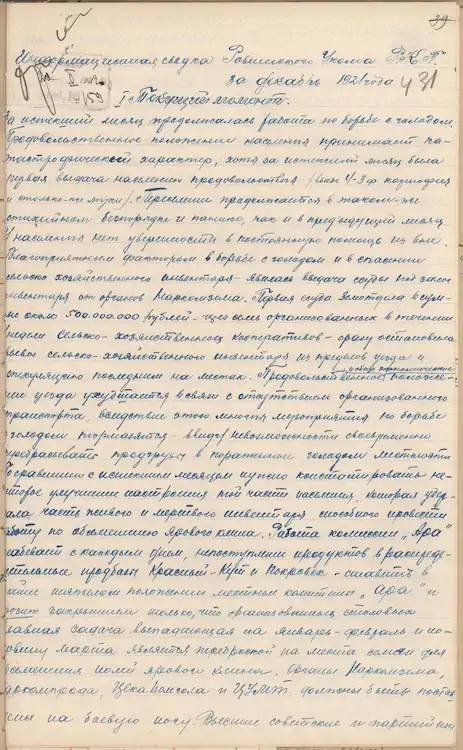 39
Информационная сводка Ровенского Укома Р.К.П.
за декабрь 1921 года 431
I Текущий момент.
За истекший месяц продолжалась работа по борьбе с голодом.
Продовольственное положение населения принимает ка-
тастрофический характер, хотя за истекший месяц была
первая выдача населению продовольствия
и столько-же муки/. Переселение продолжается в таком-же
стихийном беспорядке и панике, как и в предыдущий месяц
У населения нет уверенности в постоянную помощь из вне.
Благоприятным фактором в борьбе с голодом и в спасении
сельско-хозяйственного инвентаря явилась выдача ссуды под залог
инвентаря от органов Наркомзема. Первая ссуда Золотом в сум-
ме около 500.000.000 рублей - через семь организованных в течении
недели Сельско-хозяйственных кооперативов - сразу остановила
вывоз сельско-хозяйственного инвентаря из пределов уезда и
спекуляцию последним на местах. Продовольственное положе-
ние уезда ухудшается в связи с отсутствием организованного
транспорта, вследствие этого многия мероприятия по борьбе
с голодом тормозятся - ввиду невозможности своевременно
перебрасывать продгрузы в пораженные голодом местности
По сравнению с истекшим месяцем нужно констатировать не-
которое улучшение настроения той части населения, которая удер-
жала часть живого и мертвого инвентаря способного провести
работу по обсеменению ярового клина. Работа комиссии „Ара"
с каждым днем, непоступление продуктов в распреде-
лительные продбазы Красный-Кут и Покровск - ставит в
положение местные комитеты „Ара" и
закрытием только, что организованных столовых
Главная задача выпадающая на январь-февраль и по-
ловину марта является переброска на места семян для
обсеменения полей ярового клина. Органы Наркомзема,
Наркомпрода, и должны быть постав-
лены на боевую ногу. Высшие советские и партийные